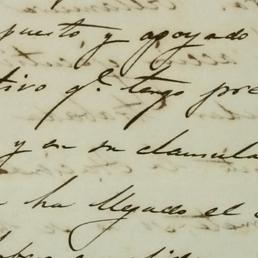 puesto y apoyado
tivo q.e tengo pre
y en su clausula
ha llegado el